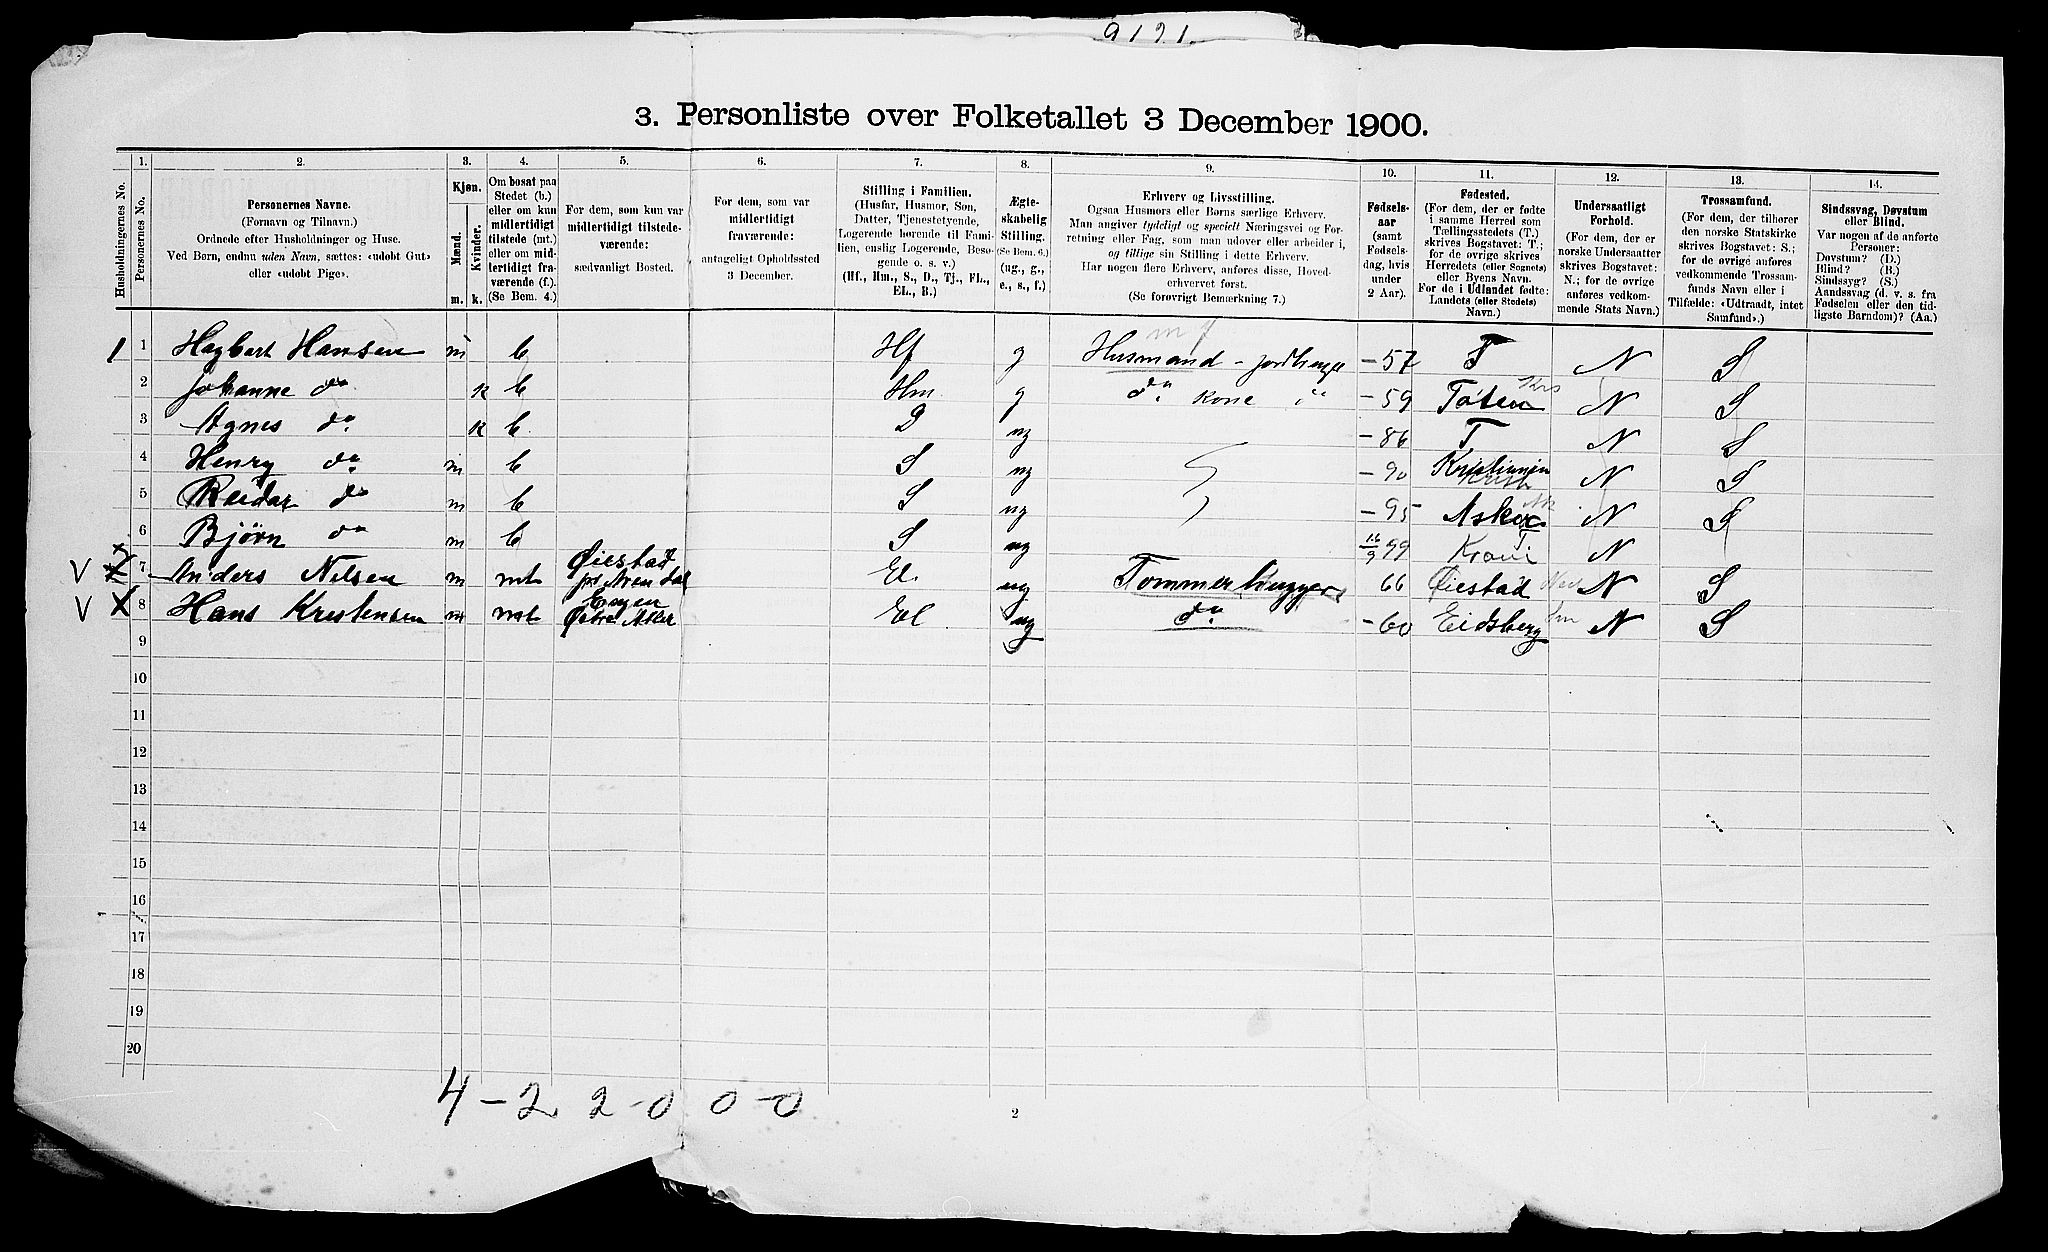 9121
3. Personliste over Folketallet 3 December 1900.
Husholdningernes No.
1. Personernes No.
2. Personernes Navne.
(Fornavn og Tilnavn.)
Ordnede efter Husholdninger og Huse.
Ved Børn, endnu uden Navn, sættes: «udobt Gut»
eller «udobt Pige».
3. Kjøn.
Mænd. Kvinder.
m. k.
4. Om bosat paa
Stedet (b.)
eller om kun
midlertidigt
tilstede (mt.)
eller om mid-
lertidigt fra-
værende (f.)
(Se Bem. 4.)
5. For dem, som kun var
midlertidigt tilstede-
værende:
sædvanligt Bosted.
6. For dem, som var
midlertidigt
fraværende:
antageligt Opholdssted
3 December.
7. Stilling i Familien.
(Husfar, Husmor, Søn,
Datter, Tjenestetyende,
Logerende hørende til Fami-
lien, enslig Logerende, Besø-
gende o. s. v.)
(Hf., Hm., S., D., Tj., FL.,
EL., B.)
8. Ægte-
skabelig
Stilling.
(Se Bem. 6.)
(ug., g.,
e., s., f.)
9. Erhverv og Livsstilling.
Ogsaa Husmors eller Børns særlige Erhverv.
Man angiver tydeligt og specielt Næringsvei og For-
retning eller Fag, som man udover eller arbeider i,
og tillige sin Stilling i dette Erhverv.
Har nogen flere Erhverv, anføres disse, Hoved-
erhvervet først.
(Se forøvrigt Bemærkning 7.)
10. Fødsels-
aar
(samt
Fødsels-
dag, hvis
under
2 Aar).
11. Fødested.
(For dem, der er fødte
i samme Herred som
Tællingsstedets (T.)
skrives Bogstavet: T;
for de øvrige skrives
Herredets (eller Sognets)
eller Byens Navn.
For de i Udlandet fødte:
Landets (eller Stedets)
Navn.)
12. Undersaatligt
Forhold.
(For dem, der er
norske Undersaatter
skrives Bogstavet:
N.; for de øvrige
anføres vedkom-
mende Stats Navn.)
13. Trossamfund.
(For dem, der tilhører
den norske Statskirke
skrives Bogstavet: S.;
for de øvrige anføres
vedkommende Trossam-
funds Navn eller i
Tilfælde: «Udtraadt, intet
Samfund».)
14. Sindssvag, Døvstum
eller Blind.
Var nogen af de anførte
Personer:
Døvstum? (D.)
Blind? (B.)
Sindssyg? (S.)
Aandssvag (d. v. s. fra
Fødselen eller den tid-
ligste Barndom)? (Aa.)
m f
1 1 Hagbart Hansen m b Hf g Husmand - jordbruger -57 T N S
2 Johanne do k b Hm. g do. Kone do -59 Toten Krs N S
3 Agnes do. k b D ug -86 T N S
4 Henry do m b S ug -90 Kristiania N S
5 Reidar do m b S ug -95 Asker Ak N S
6 Bjørn do m b S ug 16/9 99 T N
V X 7 Anders Nilsen m mt Øiestad pr Arendal El. ug Tømmerhugger 66 Øiestad Ned N S
V X 8 Hans Kristensen m mt Engen Østre Aker El ug do -60 Eidsberg Sm N S
9
10
11
12
13
14
15
16
17
18
19
20
4 - 2 2 - 0 0 - 0
2